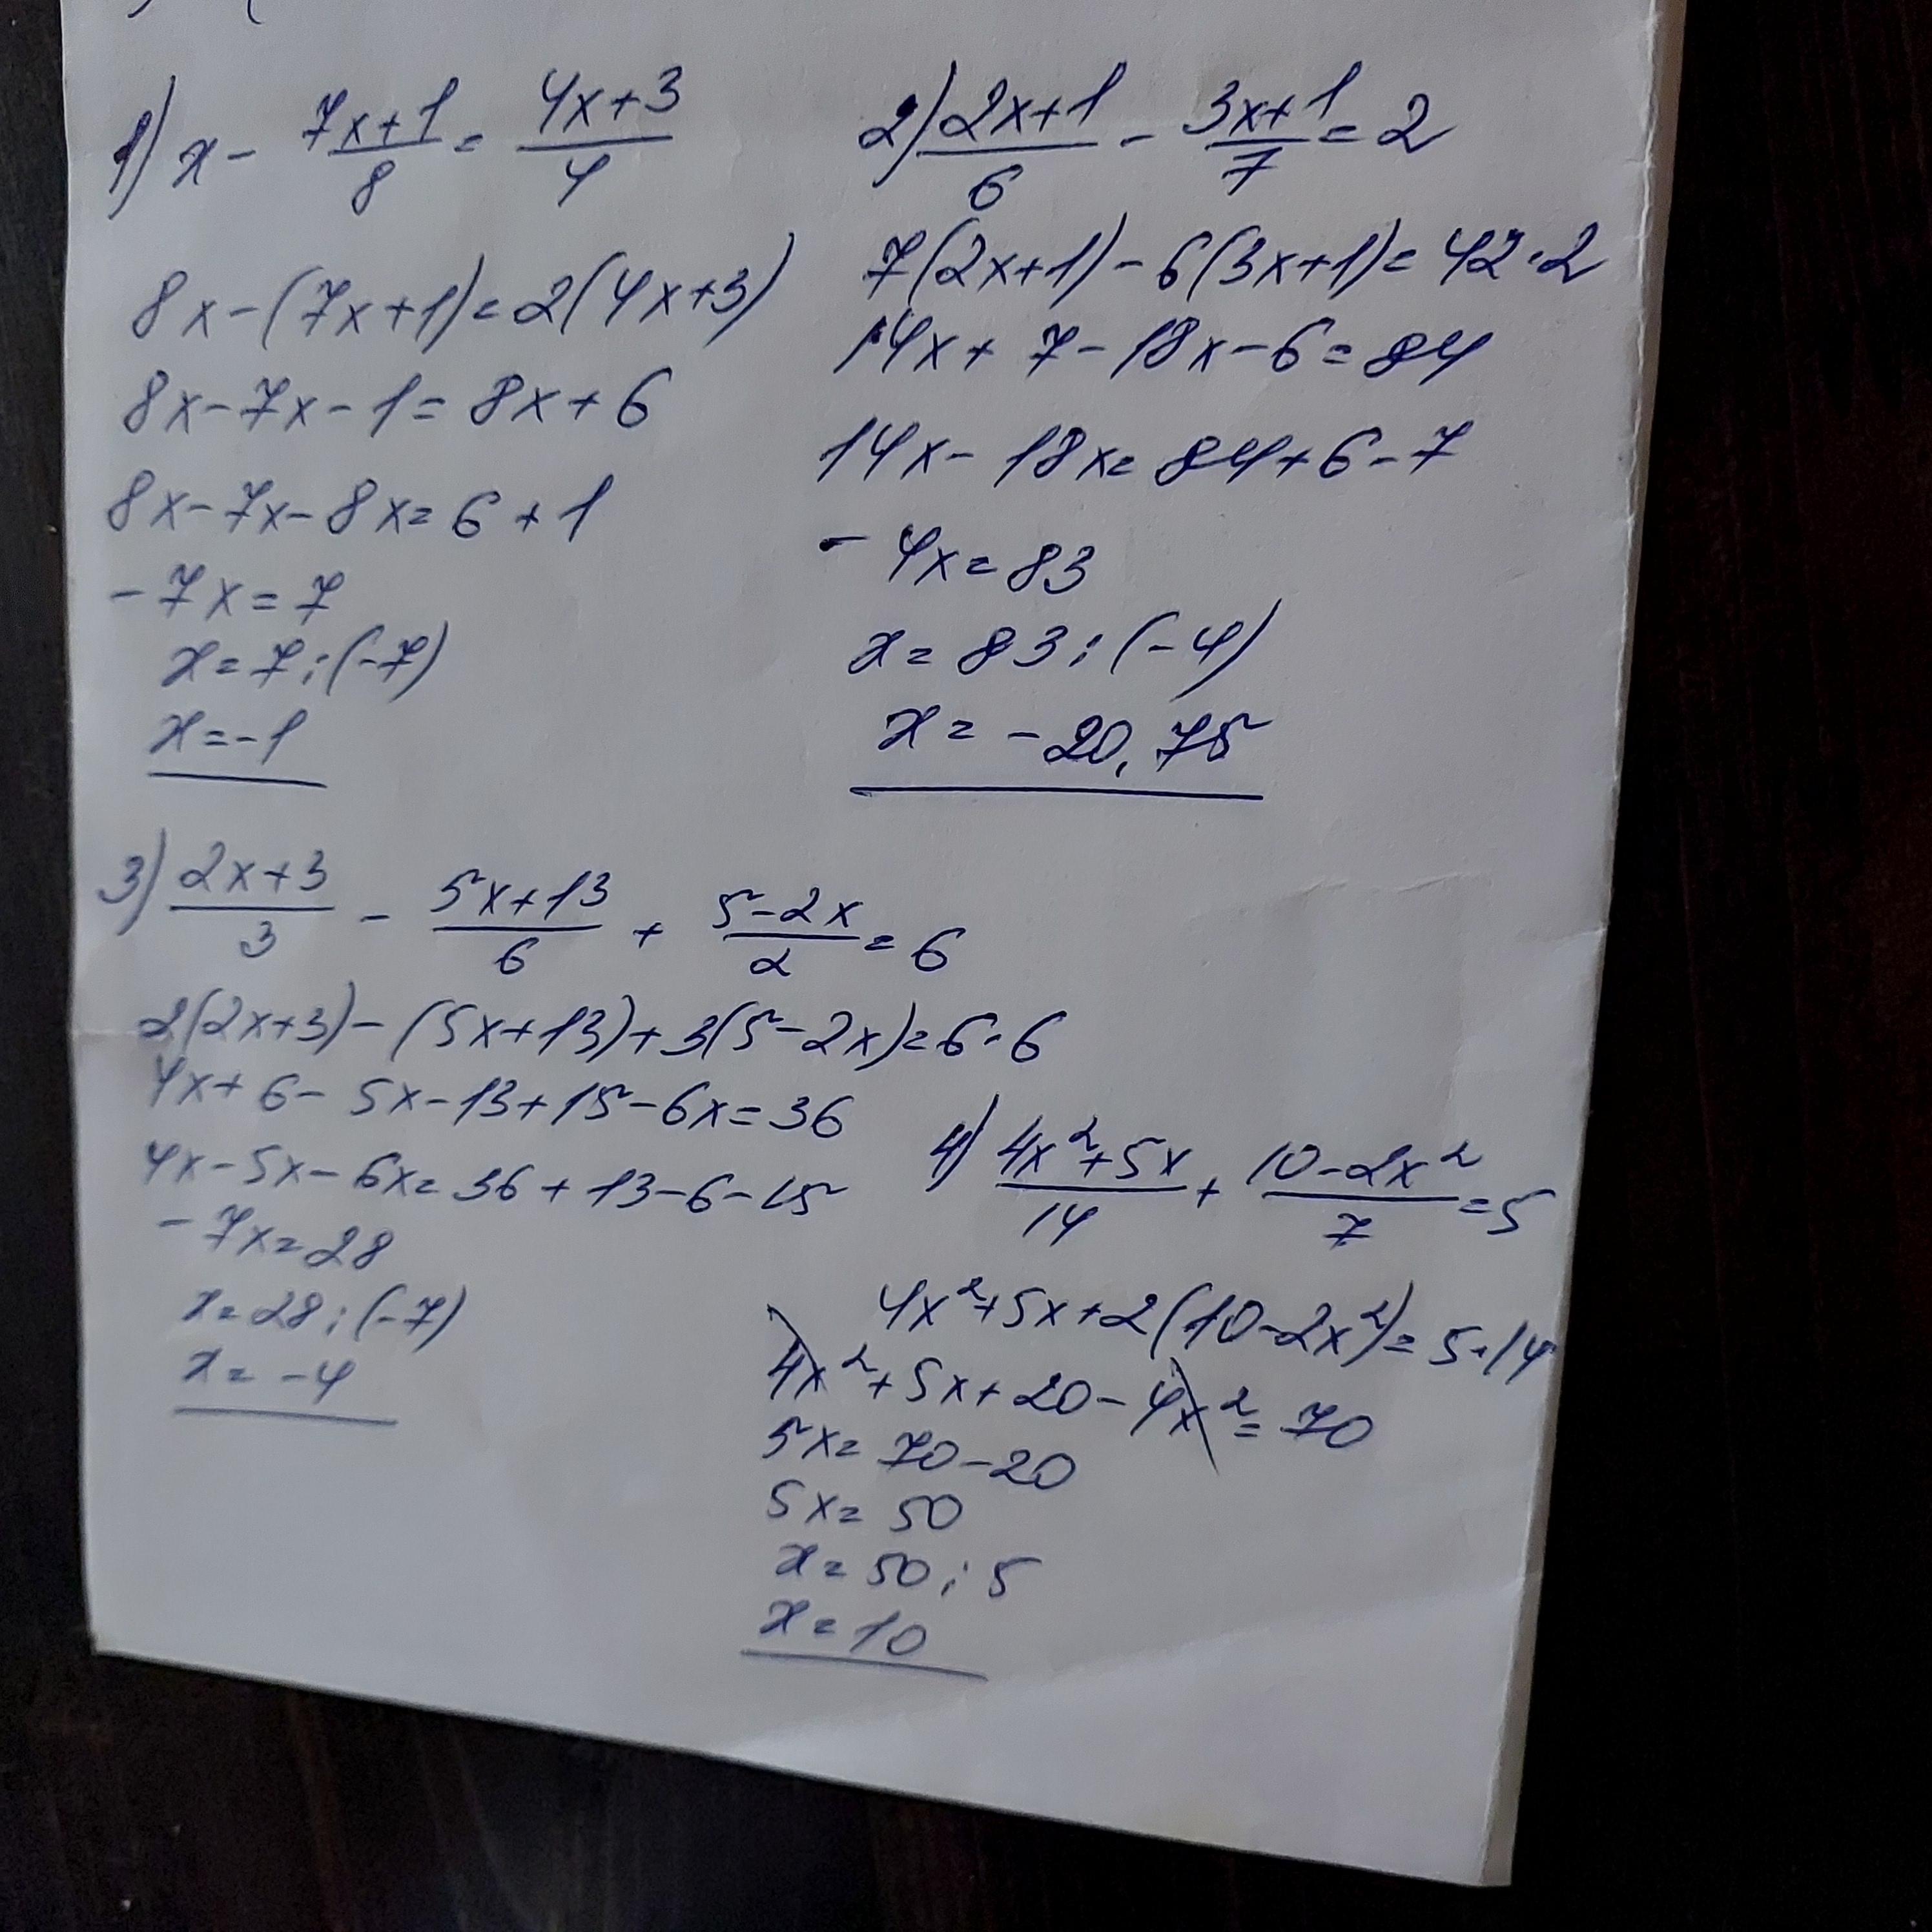 1) x - (7x+1)/8 = (4x+3)/4
8x-(7x+1)=2(4x+3)
8x-7x-1=8x+6
8x-7x-8x=6+1
-7x=7
x=7:(-7)
x=-1
2) (2x+1)/6 - (3x+1)/7 = 2
7(2x+1)-6(3x+1)=42·2
14x+7-18x-6=84
14x-18x=84+6-7
-4x=83
x=83:(-4)
x=-20,75
3) (2x+3)/3 - (5x+13)/6 + (5-2x)/2 = 6
2(2x+3)-(5x+13)+3(5-2x)=6·6
4x+6-5x-13+15-6x=36
4x-5x-6x=36+13-6-15
-7x=28
x=28:(-7)
x=-4
4) (4x²+5x)/14 + (10-2x²)/7 = 5
4x²+5x+2(10-2x²)=5·14
4x²+5x+20-4x²=70
5x=70-20
5x=50
x=50:5
x=10